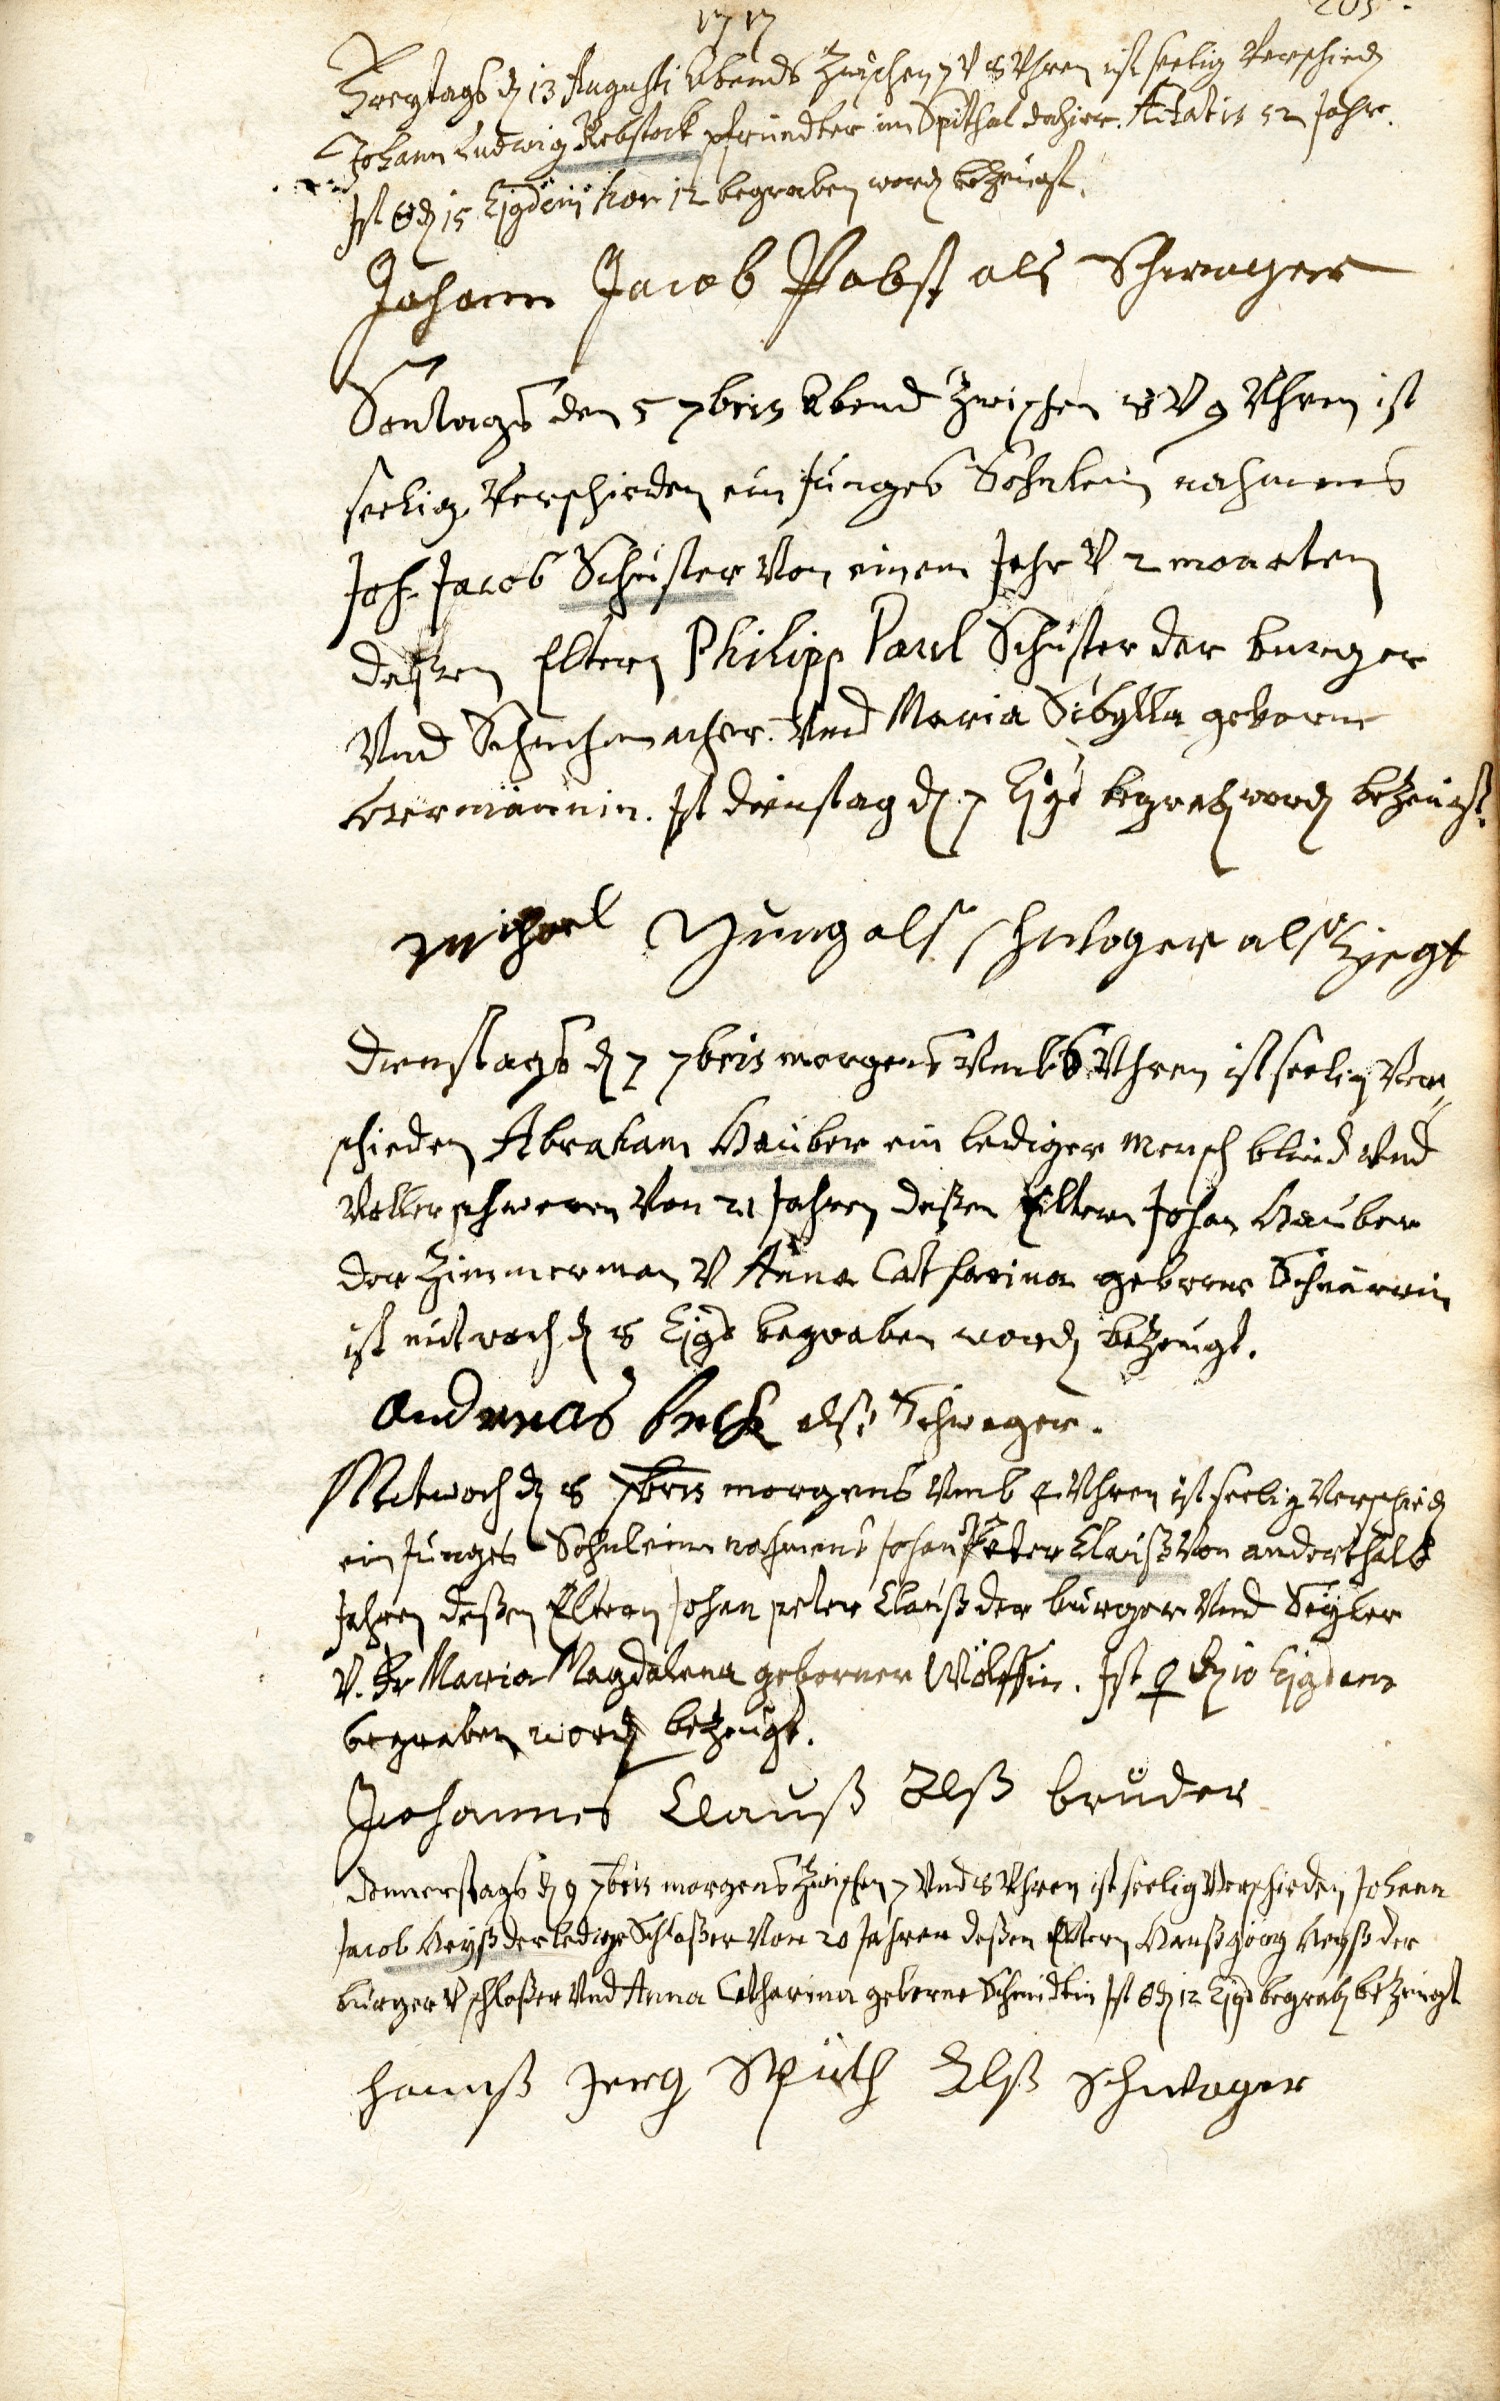 1717
205.
Freytags den 13 Augusti Abends zwischen 7 V 8 Uhren ist seelig Verschieden
Johann Ludwig Rebstock pfründter im Spithal dahier. Ætatis 52 Jahr.
Ist ☉ den 15 Ejgdem hor 12 begraben worden bezeugt.
Johann Jacob Pabst als Schwager
Sontags den 5 7bris Abend zwischen 8 V 9 Uhren ist
seelig Verschieden ein Junges Söhnlein nahmens
Joh. Jacob Schuster Von einem Jahr V 2 monaten
deßen Eltern Philipp Paul Schuster der burger
Und Schuchmacher. Und Maria Sibylla geborne
. Ist dienstag den 7 Ejgd begraben worden bezeugt.
Michael Jung alß schwager alß
Dienstags den 7 7bris morgens Umb 6 Uhren ist seelig Ver„
schieden Abraham Hauber ein lediger Mensch blind Und
Voller schweren Von 21 Jahren deßen Eltern Johan Hauber
der Zimmerman V Anna Catharina geborne
ist mitwoch den 8 Ejgd begraben worden bezeugt.
Andreas beck alß Schwager.
Mitwoch den 8 7bris morgens Umb 4 Uhren ist seelig Verschieden
ein Junges Söhnlein nahmens Johan Peter Clauß Von anderthalb
Jahren deßen Eltern Johan peter Clauß der burger Und Seyler
V. Fr Maria Magdalena geborner Wölffin. Ist ♀ den 10 Ejgdem
begraben worden bezeugt.
Johannes Clauß Alß bruder
Donnerstags den 9 7bris morgens zwischen 7 Und 8 Uhren ist seelig Verschieden Johann
Jacob Heyß der ledige Schloßer Von 20 Jahren deßen Eltern Hanß Görg Heyß der
burger V schloßer Und Anna Catharina geborne Schmidtin Ist ☉ den 12 Ejgd begraben bezeugt
Hannß Jerg Späth Alß Schwager